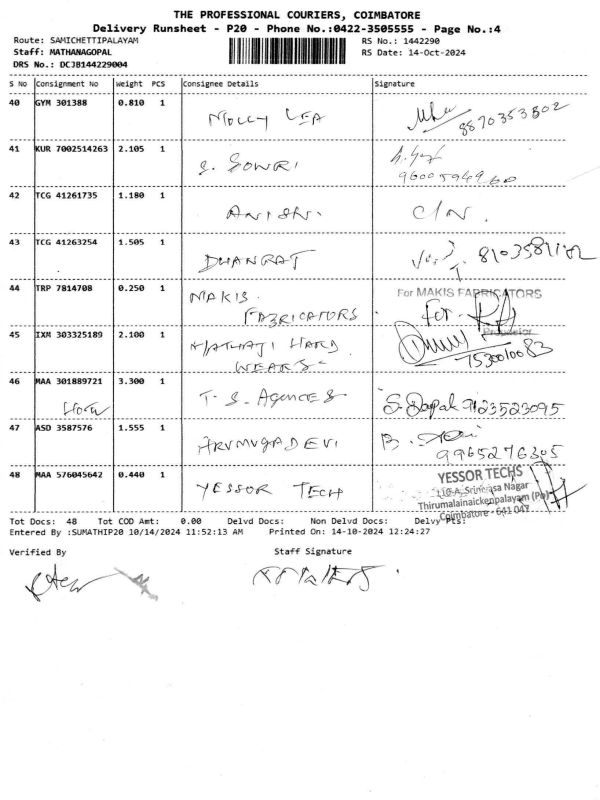 THE PROFESSIONAL COURIERS, COIMBATORE
Delivery Runsheet - P20 - Phone No.:0422-3505555 - Page No.:4
Route: SAMICHETTIPALAYAM
RS No.: 1442290
Staff: MATHANAGOPAL
RS Date: 14-Oct-2024
DRS No.: DCJB144229004
S No Consignment No Weight PCS Consignee Details Signature
40 GYM 301388 0.810 1 MOLLY LEA 8870353802
41 KUR 7002514263 2.105 1 S. SOWRI
42 TCG 41261735 1.180 1 C/N.
43 TCG 41263254 1.505 1 DHANRAJ
44 TRP 7814708 0.250 1 MAKIS FABRICATORS For MAKIS FABRICATORS
For
Proprietor
45 IXM 303325189 2.100 1 HARD WEARS 7530010083
46 MAA 301889721 3.300 1 T. S. Agences S. Gopal 9123523095
47 ASD 3587576 1.555 1 ARUMUGADEVI B. 9965276305
48 MAA 576045642 0.440 1 YESSOR TECH YESSOR TECHS
110-A, Srinivasa Nagar
Thirumalainaickenpalayam (Po)
Coimbatore - 641 047
Tot Docs: 48 Tot COD Amt: 0.00 Delvd Docs: Non Delvd Docs: Delvy Pts:
Entered By :SUMATHIP20 10/14/2024 11:52:13 AM Printed On: 14-10-2024 12:24:27
Verified By Staff Signature